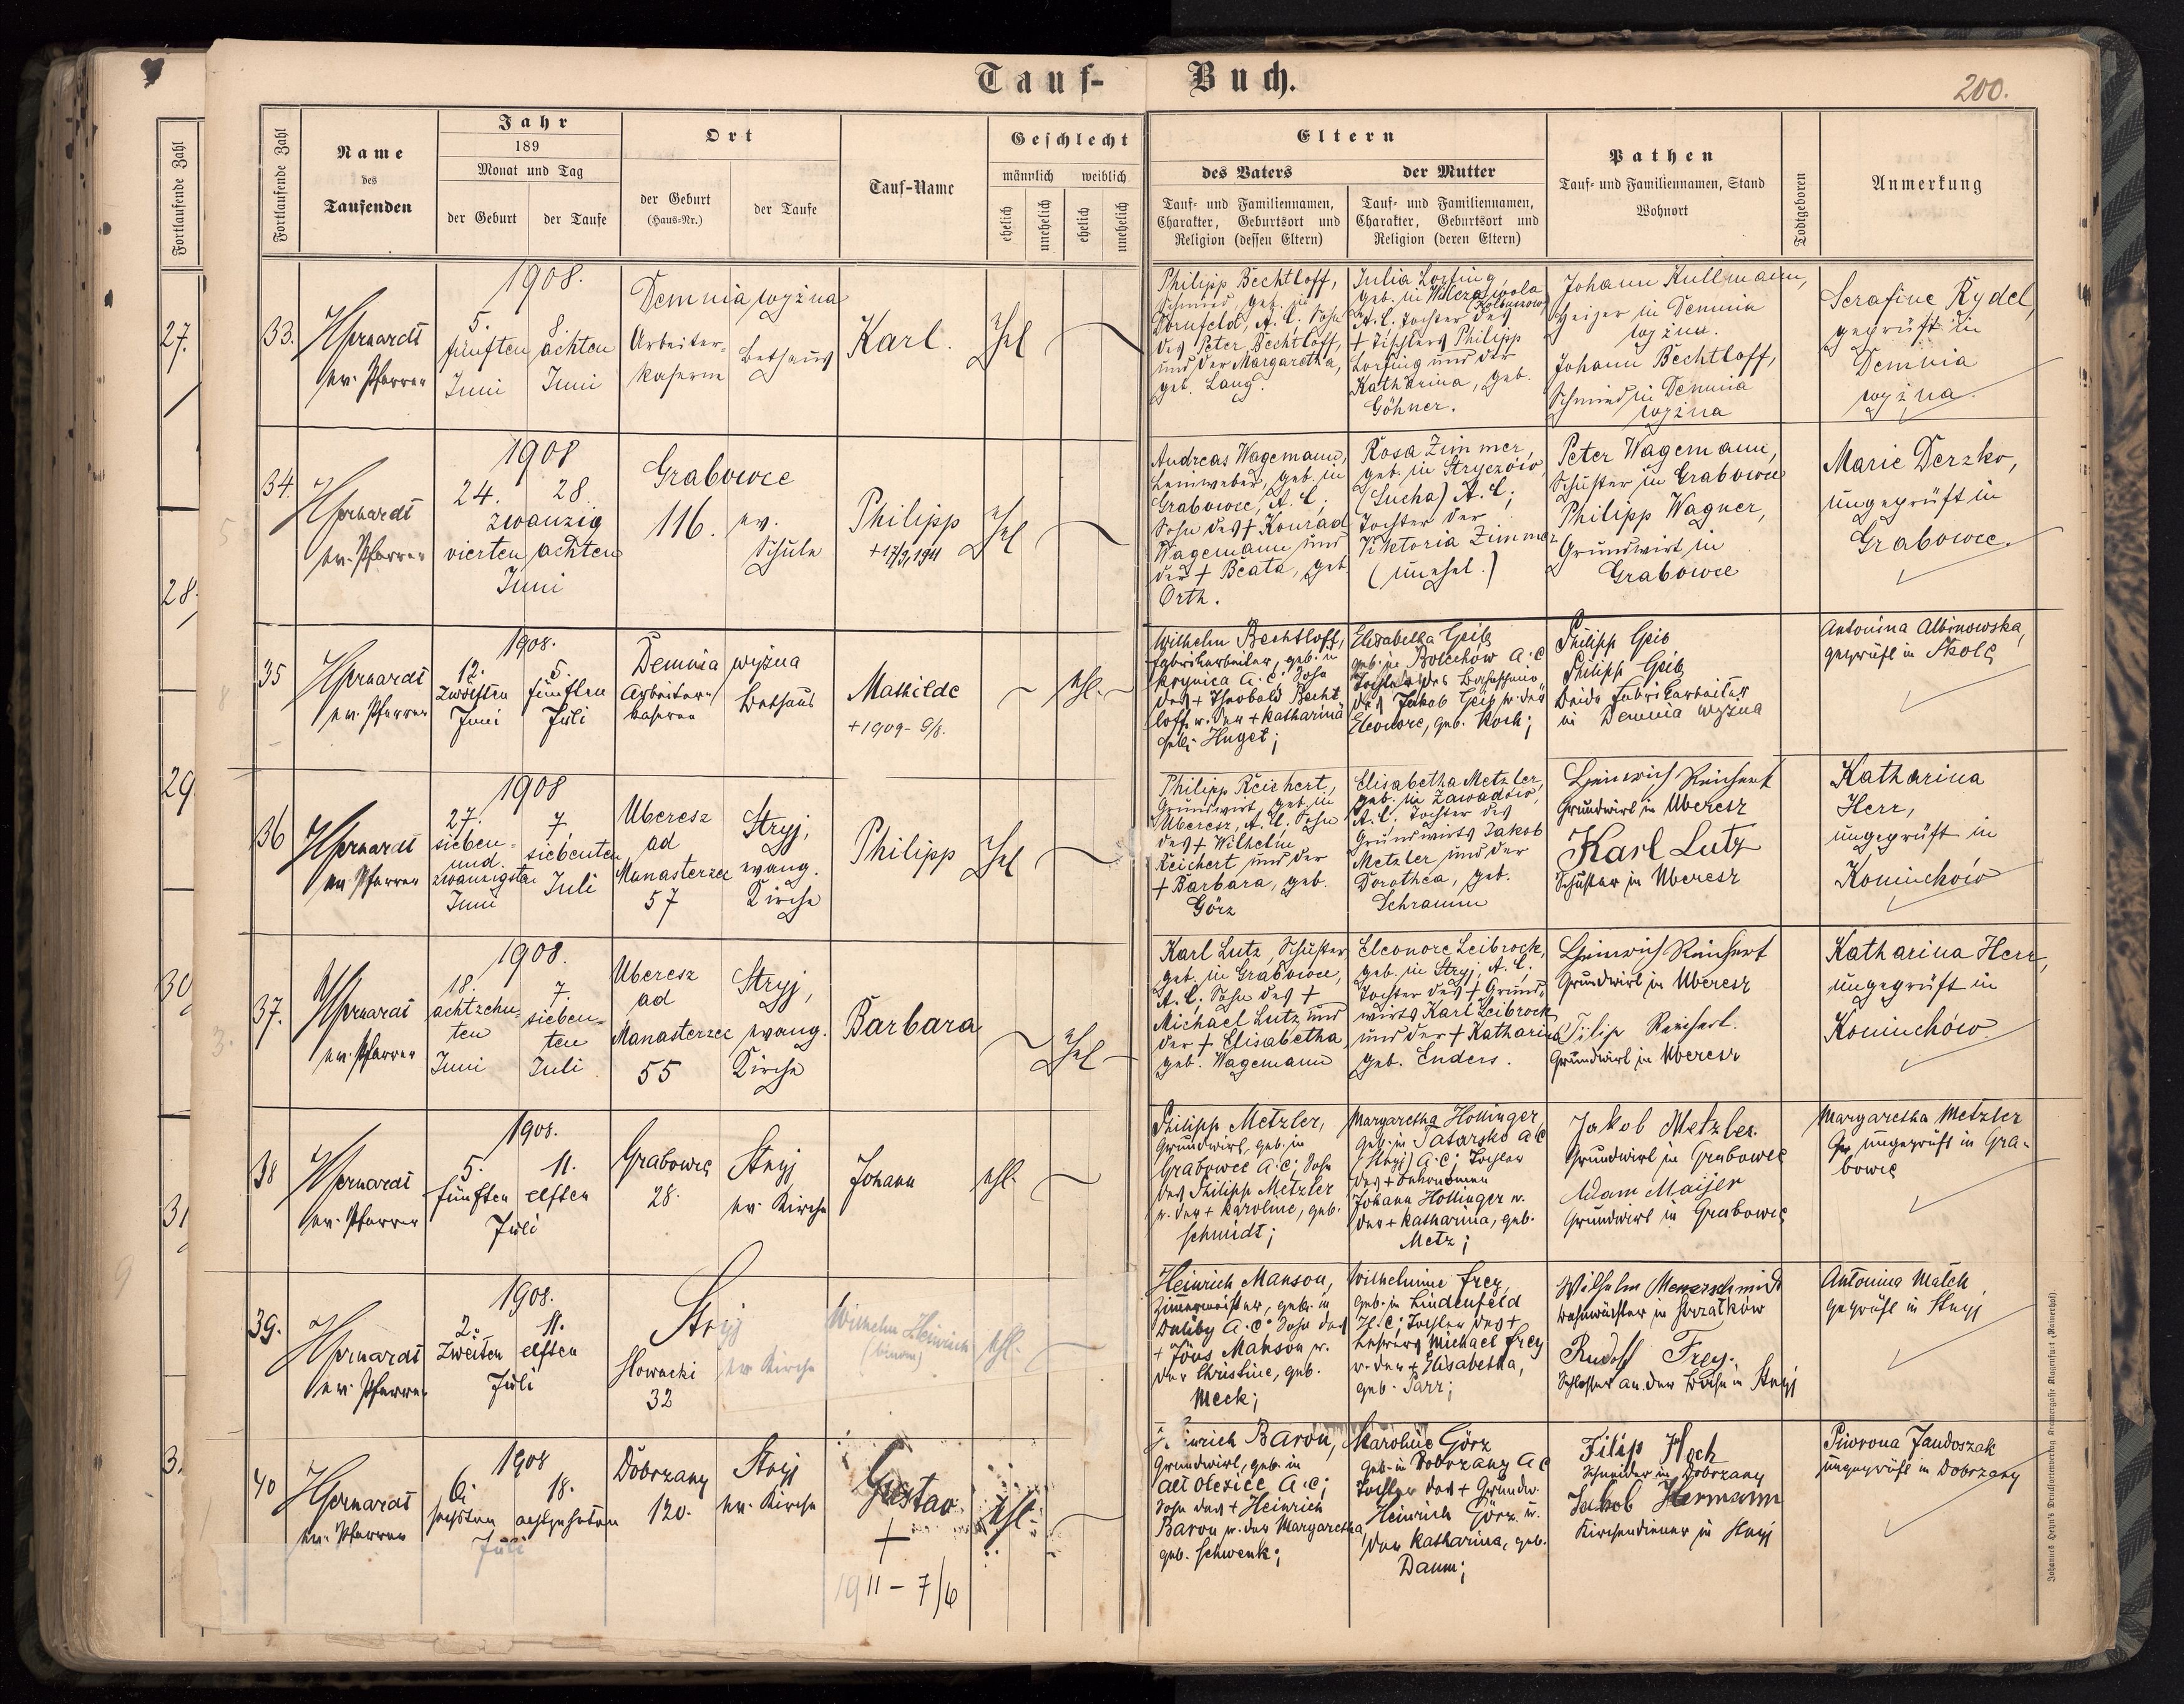 Tauf-Buch.
200.
Fortlaufende Zahl
Fortlaufende Zahl
Name des Taufenden
Jahr
189
Monat und Tag
der Geburt
der Taufe
Ort
der Geburt (Haus-Nr.)
der Taufe
Tauf-Name
Geschlecht
männlich
weiblich
ehelich
unehelich
ehelich
unehelich
Eltern
des Vaters
Tauf- und Familiennamen,
Charakter, Geburtsort und
Religion (dessen Eltern)
der Mutter
Tauf- und Familiennamen,
Charakter, Geburtsort und
Religion (deren Eltern)
Pathen
Tauf- und Familiennamen, Stand
Wohnort
Todtgeboren
Anmerkung
27.
28.
29
30
31
3.
33.
ev. Pfarrer
1908.
5.
fünften
Juni
8.
achten
Juni
Demnia wyżna
Arbeiter-
kaserne
Bethaus
Karl.
Ehel
Philipp Bechtloff,
Schmied, geb. in
Dornfeld, A.C. Sohn
des Peter Bechtloff,
und der Margaretha,
geb. Lang.
Julia
geb. in Wilcza wola
A.C. Tochter des
† Tischlers Philipp
und der
Katharina, geb.
Göhner.
Johann Kullmann,
Heizer in Demnia
wyżna.
Johann Bechtloff,
Schmied in Demnia
wyżna
Serafine Rydel,
geprüft in
Demnia
wyżna.
34.
ev. Pfarrer
1908
24.
28.
zwanzig
vierten
achten
Juni
Grabowce
116.
ev.
Schule
Philipp
Ehel
Andreas Wagemann,
Leinweber, geb. in
Grabowce, A.C;
Sohn des † Konrad
Wagemann und
der † Beata, geb
Orth.
Rosa Zimmer,
geb. in
(Sucha) A.C;
Tochter der
Viktoria Zimmer
(unehel.)
Peter Wagemann,
Schuster in Grabowce
Philipp Wagner,
Grundwirt in
Grabowce
Marie Derzko,
ungeprüft in
Grabowce.
35
ev. Pfarrer
1908.
12.
zwölften
Juni
5.
fünften
Juli
Demnia wyżna
Arbeiter-
kaserne
Bethaus
Mathilde
+1909-
ehl.
Wilhelm Bechtloff,
Fabrikarbeiter, geb. in
A.C. Sohn
des † Theobald Becht
loff u. der † Katharina
geb. Huget;
Elisabetha Geib
geb. in Bolechów A.C
des Jakob Geib u. der
Eleonore, geb. Koch;
Philipp Geib
Philipp Geib
beide Fabrikarbeiter
in Demnia wyżna
Antonina Albinowska,
geprüft in Skole
36
ev Pfarrer
1908
27.
sieben-
und
zwanzigsten
Juni
7
siebenten
Juli
Uberesz
ad
Manasterzec
57
Stryj,
evang.
Kirche
Philipp
Ehel
Philipp Reichert,
Grundwirt, geb. in
Uberesz, A.C. Sohn
des † Wilhelm
Reichert und der
† Barbara, geb.
Görz
Elisabetha Metzler,
geb. in Zawadów,
A.C. Tochter des
Grundwirts Jakob
Metzler und der
Dorothea, geb.
Schramm
Heinrich Reichert
Grundwirt in Uberesz
Karl Lutz
Schuster in Uberesz
Katharina
Herr,
ungeprüft in
Koniuchów
37.
ev. Pfarrer
1908.
18.
achtzehn-
ten
Juni
7.
sieben-
ten
Juli
Uberesz
ad
Manasterzec
55
Stryj,
evang.
Kirche
Barbara
Ehel
Karl Lutz, Schuster,
geb. in Grabowce,
A.C. Sohn des †
Michael Lutz und
der † Elisabetha
geb. Wagemann
Eleonore Leibrock,
geb. in Stryj, A.C;
Tochter des † Grund-
wirts Karl Leibrock
und der † Katharina
geb. Enders.
Heinrich Reichert
Grundwirt in Uberesz
Filip Reichert.
Grundwirt in Uberesz
Katharina Herr,
ungeprüft in
Koniuchów
38
ev. Pfarrer
1908.
5.
fünften
11.
elften
Juli
Grabowce
28.
Stryj
ev. Kirche
Johann
ehl.
Philipp Metzler,
Grundwirt, geb. in
Grabowce A.C; Sohn
des Philipp Metzler
u. der † Karoline, geb.
Schmidt;
Margaretha Hollinger
geb. in Tatarsko A.C
(Stryj) A.C; Tochter
des † Oekonomen
Johann Hollinger u.
der † Katharina, geb.
Metz;
Jakob Metzler
Grundwirt in Grabowce
Adam Maijer
Grundwirt in Grabowce
Margaretha Metzler
ungeprüft in Gra-
bowce
39.
ev. Pfarrer
1908.
2.
zweiten
11.
elften
Juli
Stryj
Slowacki
32
ev Kirche
Wilhelm Heinrich
(binom)
ehl.
Heinrich Manson,
Zimmermeister, geb. in
Duliby A.C. Sohn des
Manson u.
der Christine, geb.
Meck;
Wilhelmine Frey,
geb. in Lindenfeld
H.C; Tochter des †
Lehrers Michael Frey
u. der † Elisabetha,
geb. Parr;
Wilhelm
Bahnwächter in
Rudolf Frey.
Schlosser an der Bahn in Stryj
Antonina Matek
geprüft in Stryj
40
ev. Pfarrer
1908
6.
sechsten
18.
achtzehnten
Juli
Dobrzany
120.
Stryj
ev. Kirche
Gustav
+
1911 - 7/6
ehl.
Heinrich Baron,
Grundwirt, geb. in
A.C;
Sohn des † Heinrich
Baron u. der Margaretha,
geb. Schwenk;
Karoline Görz
geb. in Dobrzany A C
Tochter des † Grundw.
Heinrich Görz u.
der Katharina, geb.
Daum;
Filip Hoch
Schneider in Dobrzany
Jakob Hermann
Kirchendiener in Stryj
Jandoszak
ungeprüft in Dobrzany